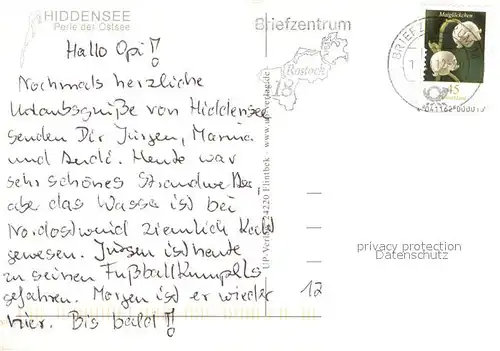 HIDDENSEE
Perle der Ostsee
Hallo Opi!
Nochmals herzliche
Urlaubsgrüße von Hiddensee
senden Dir Jürgen, Marina
und Andi. Heute war
sehr schönes Strandwetter,
aber das Wasser ist bei
Nordostwind ziemlich kalt
gewesen. Jürgen ist heute
zu seinen Fußballkumpels
gefahren. Morgen ist er wieder
hier. Bis bald!
UP-Verlag 24220 Flintbek
Briefzentrum
Rostock
18
Maiglöckchen
45
BRIEFZENTRUM
privacy protection
Datenschutz
12